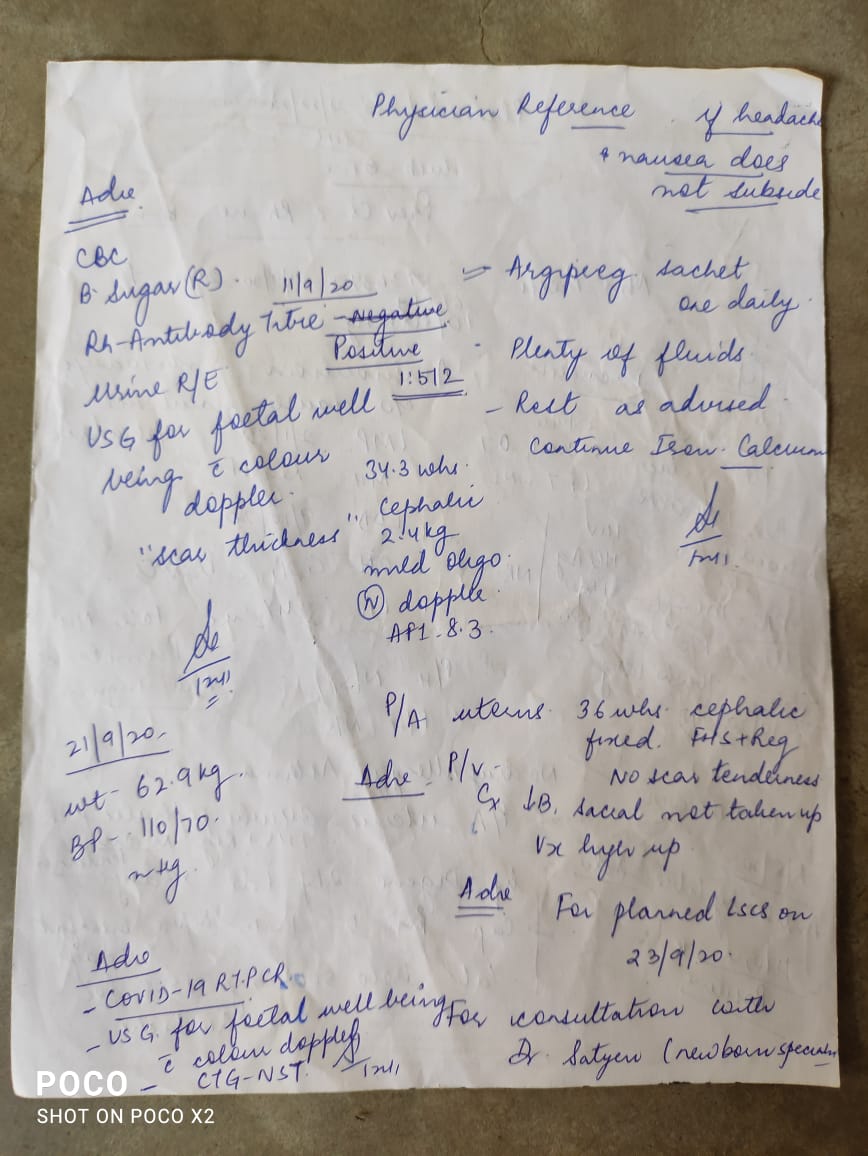 Physician Reference if headache
& nausea does
not subside
Adve
CBC
B. Sugar (R). 11/9/20
Rh-Antibody Titre - Negative
Positive
1:512
Urine R/E
USG for foetal well
being c̄ colour
doppler.
"scar thickness"
34.3 wks.
Cephalic
2.4 kg
mild oligo.
(N) dopple
AFI - 8.3.
= Argipreg sachet
one daily.
- Plenty of fluids.
- Rest as advised.
Continue Iron. Calcium
21/9/20.
wt - 62.9 kg.
BP - 110/70.
mmHg.
P/A uterus 36 wks. cephalic
fixed. FHS+Reg
No scar tenderness
Adve - P/V -
Cx sacral not taken up
Vx higher up.
Adve For planned LSCS on
23/9/20.
For consultation with
Dr. Satyen (newborn
Adve
- COVID-19 RT.PCR.
- USG. for foetal well being
c̄ colour doppler
- CTG-NST.
POCO
SHOT ON POCO X2